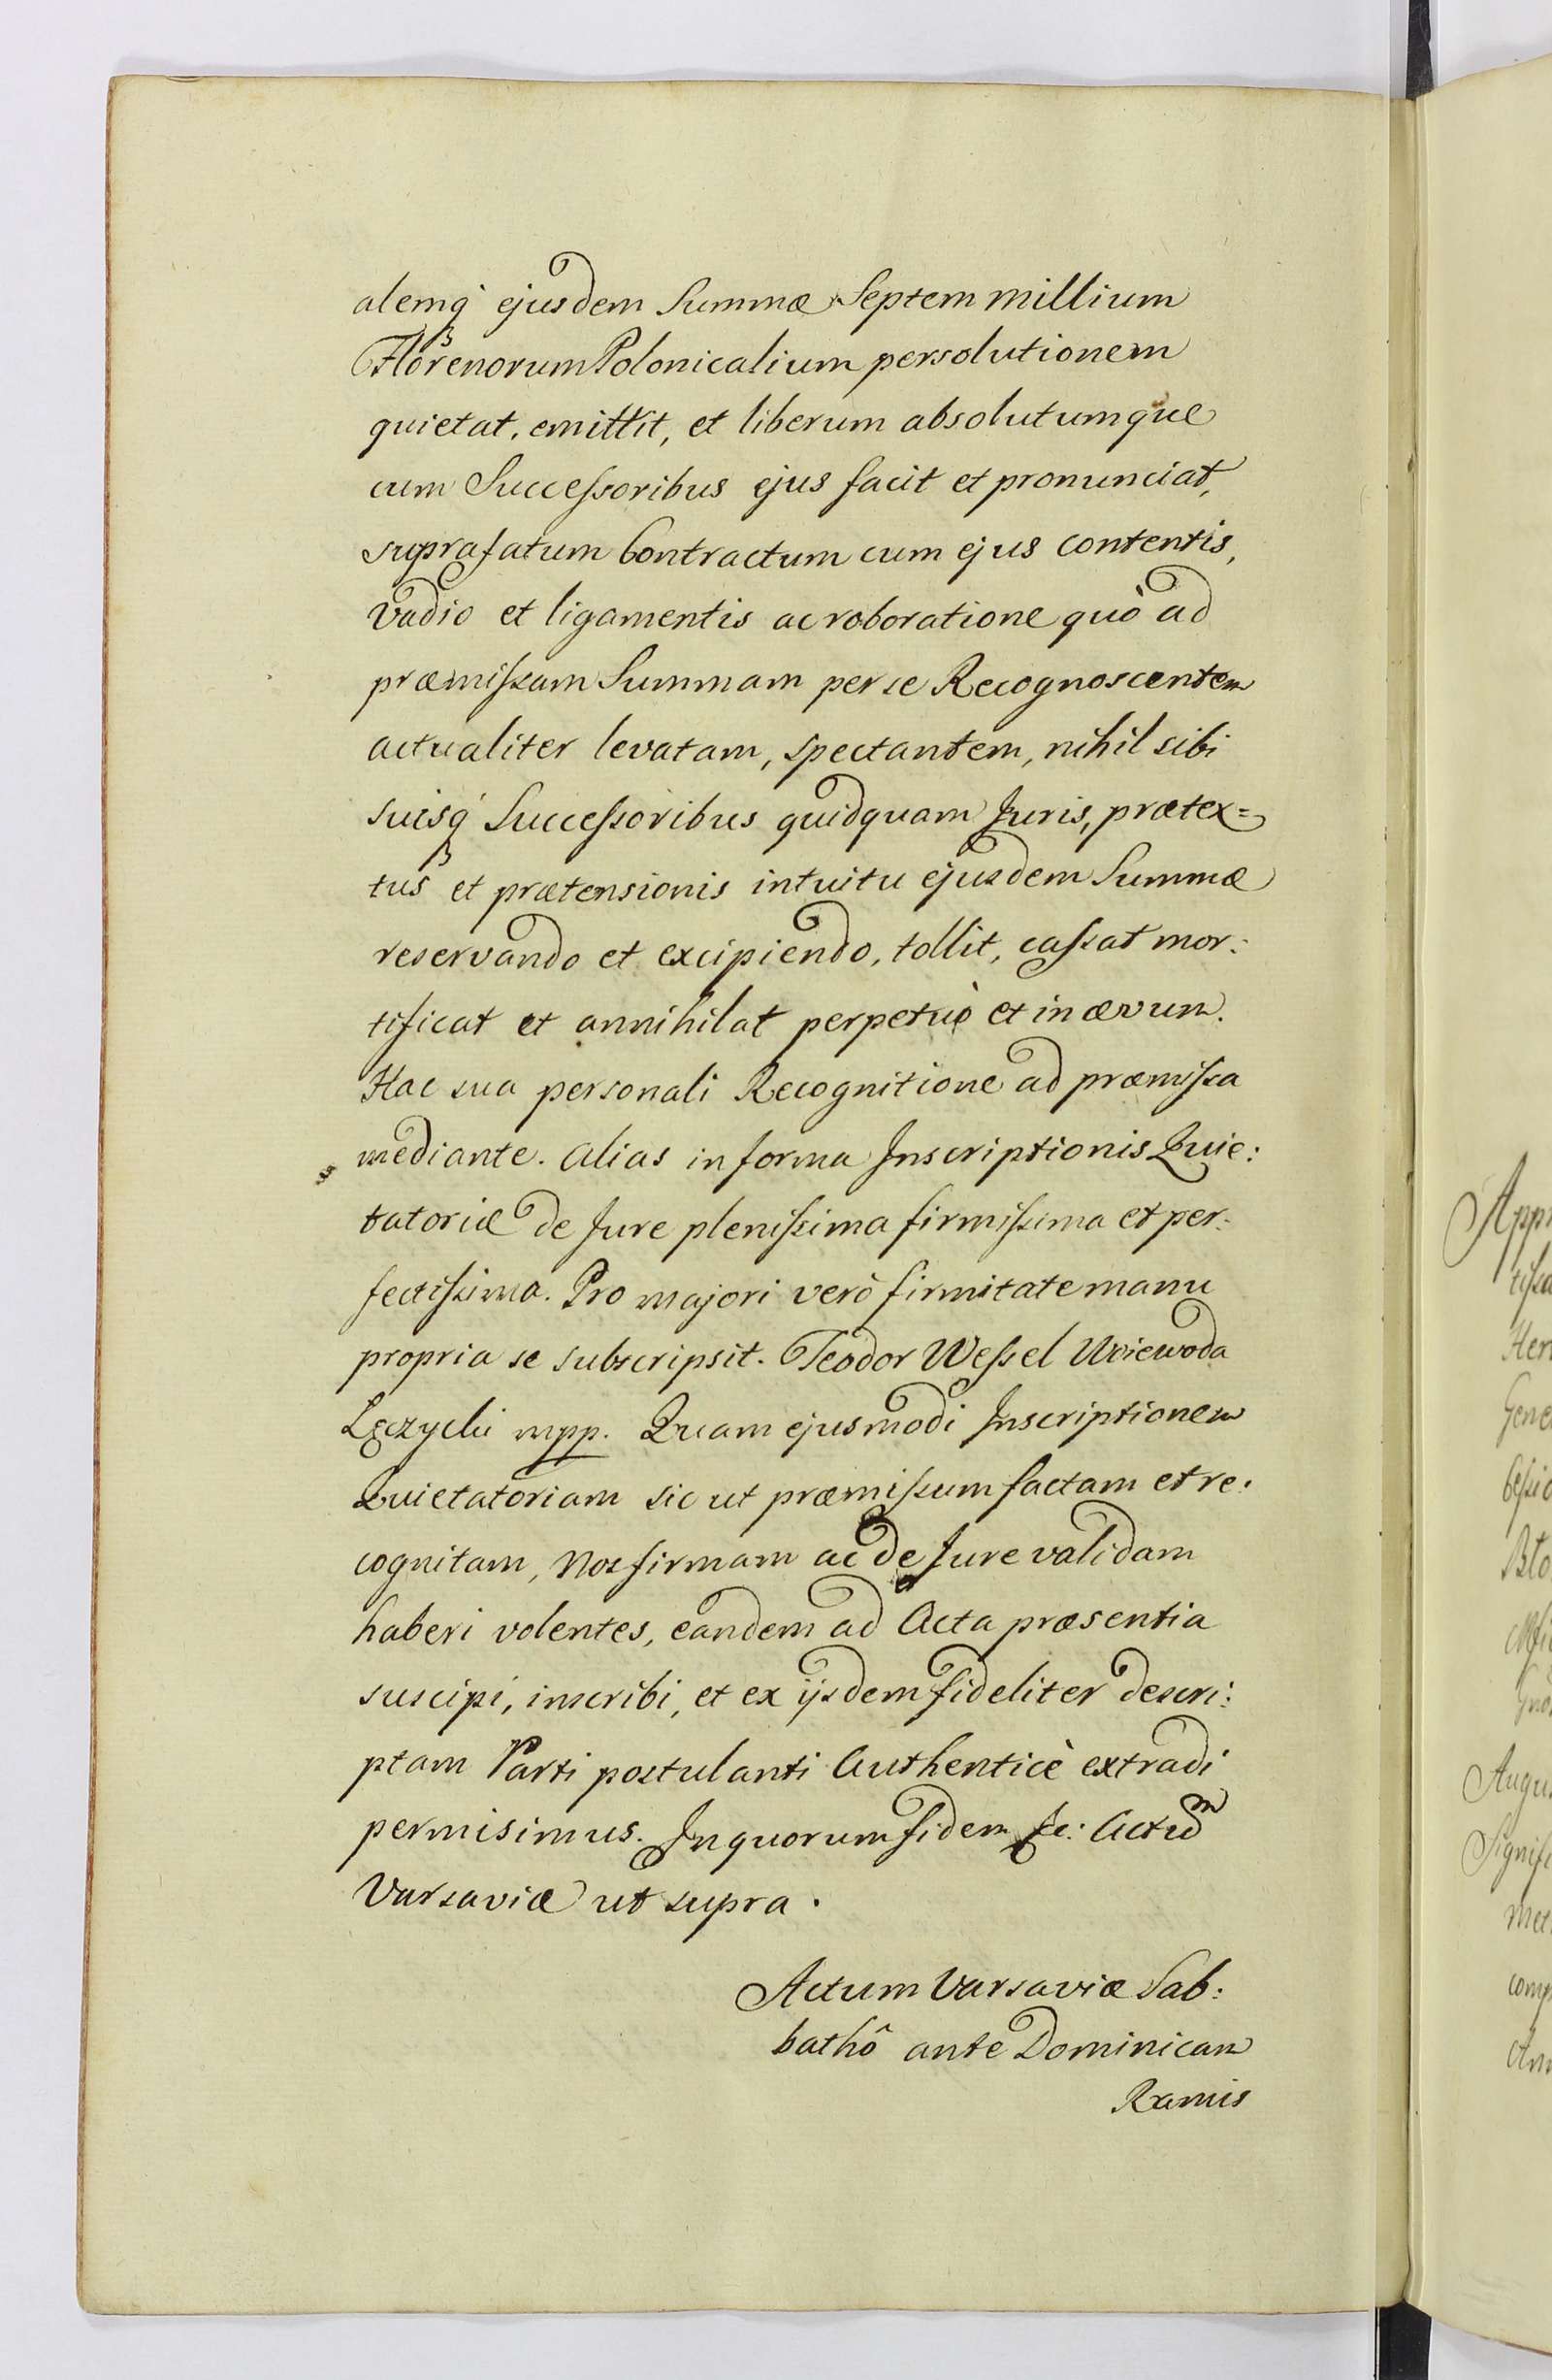 alemq́ ejusdem Summæ Septem millium
Florenorum Polonicalium persolutionem
quietat, emittit, et liberum absolutumque
cum Successoribus ejus facit et pronunciat,
suprafatum Contractum cum ejus contentis,
Vadio et ligamentis ac roboratione quò ad
præmissam Summam per se Recognoscentem
actualiter levatam, spectantem, nihil sibi
suisq́ Successoribus quidquam Juris, prætex=
tus et prætensionis intuitu ejusdem Summæ
reservando et excipiendo, tollit, cassat mor:
tificat et annihilat perpetuò et in ævum.
Hac sua personali Recognitione ad præmissa
mediante. Alias in forma Inscriptionis Quie:
tatoriæ de Jure plenissima firmissima et per:
fectissima. Pro majori verò firmitate manu
propria se subscripsit. Teodor Wessel Woiewoda
Łęczycki mpp. Quam ejusmodi Inscriptionem
Quietatoriam sic ut præmissum factam et re:
cognitam, Nos firmam ac de Jure validam
haberi volentes, eandem ad Acta præsentia
suscipi, inscribi, et ex ijsdem fideliter descri:
ptam Parti postulanti Authenticè extradi
permisimus. In quorum fidem &c: Actum
Varsaviæ ut supra.
Actum Varsaviæ Sab:
bathô ante Dominicam
Ramis